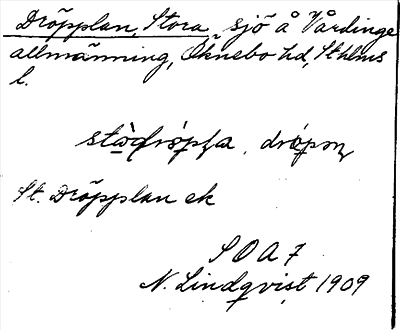 Dröpplan, Stora, sjö å Vårdinge
allmänning, Öknebo hd, Sthlms
l.
St. Dröpplan ek
S O A 7
N. Lindqvist 1909